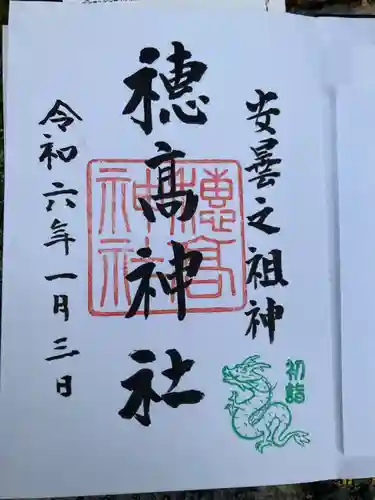 安曇之祖神
穂高神社
令和六年一月三日
穂高
神社
初詣